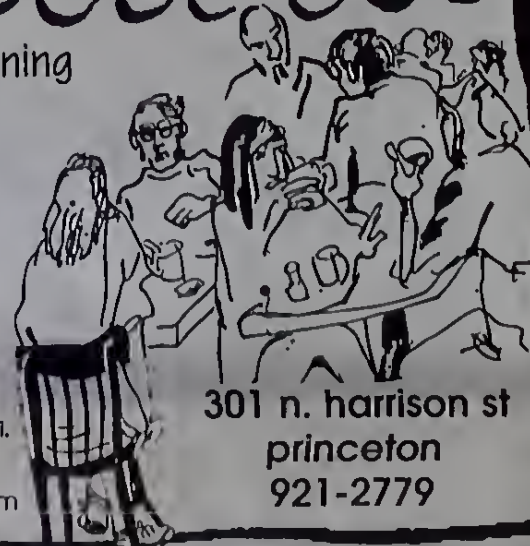 ning
301 n. harrison st
princeton
921-2779
m